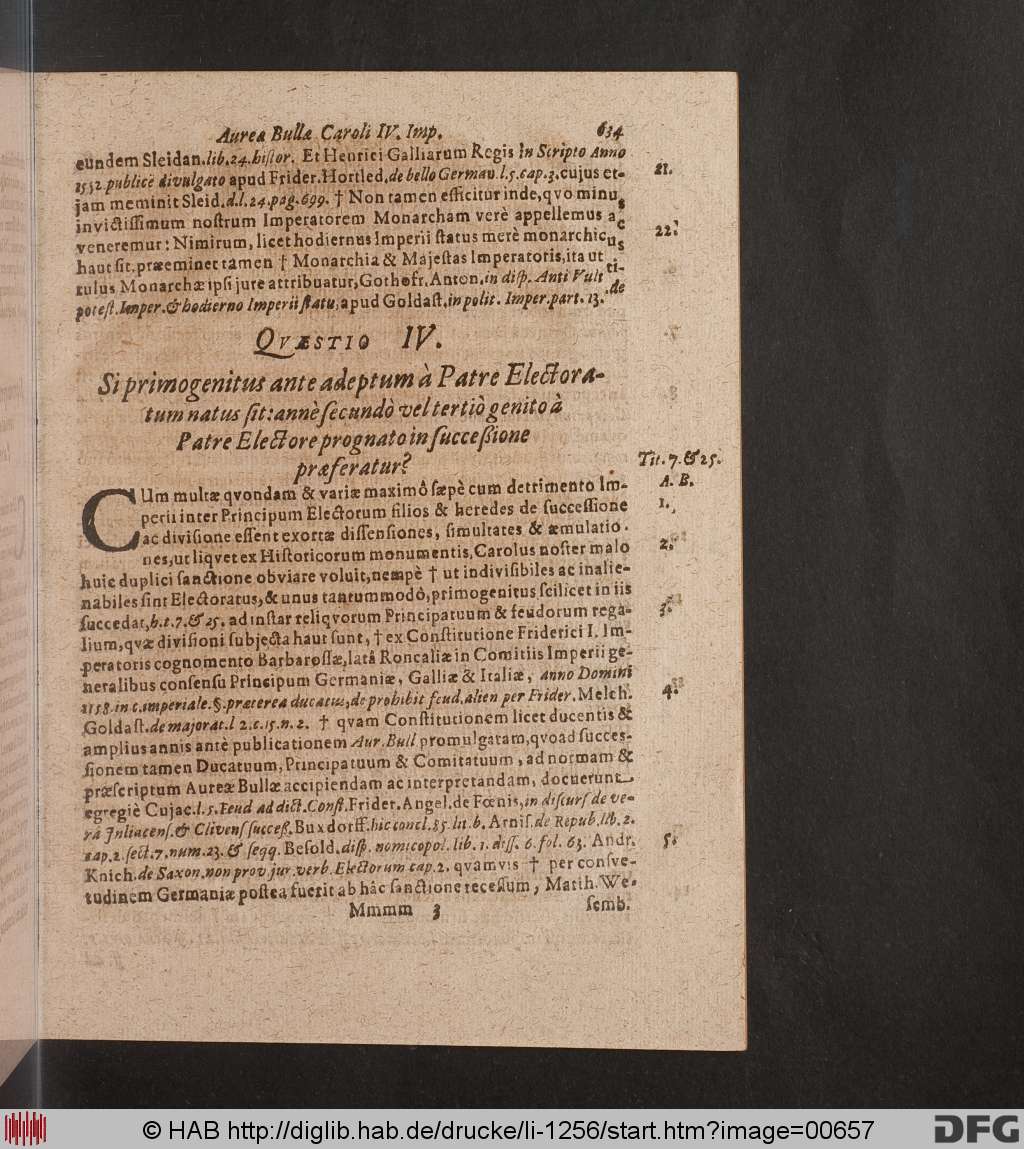 Aurea Bullæ Caroli IV. Imp. 634
eundem Sleidan.lib.24.histor. Et Henrici Galliarum Regis in Scripto Anno
1552 publicè divulgato apud Frider.Hortled.de bello German.l.5.cap.3.cujus et- 21.
jam meminit Sleid.d.l.24.pag.699. † Non tamen efficitur inde,qvo minus
invictissimum nostrum Imperatorem Monarcham verè appellemus ac
veneremur: Nimirum, licet hodiernus Imperii status merè monarchicus 22.
haut sit.præeminet tamen † Monarchia & Majestas Imperatoris,ita ut ti-
tulus Monarchæ ipsi jure attribuatur,Gothofr.Anton.in disp. Anti Vult de
potest.Imper.& hodierno Imperii statu,apud Goldast.in polit. Imper.part. 13.
QVÆSTIO IV.
Si primogenitus ante adeptum à Patre Electora-
tum natus sit: annè secundò vel tertiò genito à
Patre Electore prognato in successione
præferatur?
Tit. 7. & 25.
A. B.
CUm multæ qvondam & variæ maximô sæpè cum detrimento Im-
perii inter Principum Electorum filios & heredes de successione 1.
ac divisione essent exortæ dissensiones, simultates & æmulatio-
nes,ut liqvet ex Historicorum monumentis,Carolus noster malo 2.
huic duplici sanctione obviare voluit,nempè † ut indivisibiles ac inalie-
nabiles sint Electoratus,& unus tantummodô,primogenitus scilicet in iis
succedat,h.t.7.& 25. ad instar reliqvorum Principatuum & feudorum rega- 3.
lium,qvæ divisioni subjecta haut sunt, † ex Constitutione Friderici I. Im-
peratoris cognomento Barbarossæ,latâ Roncaliæ in Comitiis Imperii ge-
neralibus consensu Principum Germaniæ, Galliæ & Italiæ, anno Domini
1158.in c.imperiale.§.præterea ducatus,de prohibit feud.alien per Frider.Melch. 4.
Goldast.de majorat.l 2.c.15.n.2. † qvam Constitutionem licet ducentis &
amplius annis antè publicationem Aur.Bull promulgatam,qvoad succes-
sionem tamen Ducatuum, Principatuum & Comitatuum, ad normam &
præscriptum Aureæ Bullæ accipiendam ac interpretandam, docuerunt
egregiè Cujac.l.5.Feud ad dict.Const.Frider.Angel.de Fœnis,in discurs de ve-
râ Juliacens.& Clivens success.Buxdorff.hic concl.85.lit.b. Arnis.de Repub.lib.2.
cap.2.sect.7.num.23.& seqq. Besold.disp. nomicopol.lib. 1. diss. 6. fol. 63. Andr. 5.
Knich.de Saxon.non prov jur.verb.Electorum cap.2. qvamvis † per consve-
tudinem Germaniæ postea fuerit ab hâc sanctione recessum, Matth.We-
Mmmm 3 semb.
© HAB http://diglib.hab.de/drucke/li-1256/start.htm?image=00657
DFG